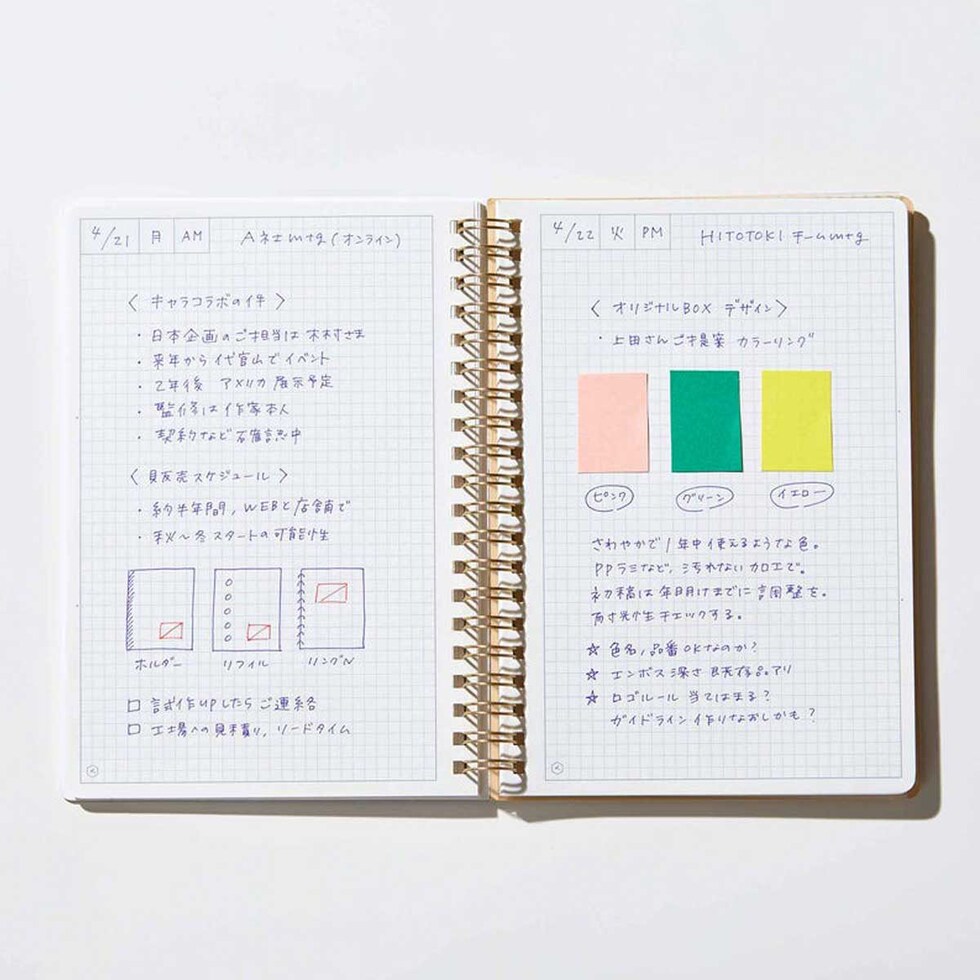 4/21 月 AM A社mtg(オンライン)
〈キャラコラボの件〉
・日本企画のご担当は木村さま
・来年から代官山でイベント
・2年後 アメリカ展示予定
・監修は作家本人
・契約など確認中
〈販売スケジュール〉
・約半年間,WEBと店舗で
・秋〜冬スタートの可能性
ホルダー リフィル リングN
□ 試作upしたらご連絡
□ 工場への見積り,リードタイム
4/22 火 PM HITOTOKIチームmtg
〈オリジナルBOX デザイン〉
・上田さんご提案 カラーリング
ピンク グリーン イエロー
さわやかで1年中使えるような色。
PPラミなど,汚れない加工で。
初稿は年明けまでに調整を。
耐光性チェックする。
☆ 色名,品番OKなのか?
☆ エンボス深さ 既存品アリ
☆ ロゴルール 当てはまる?
ガイドライン作りなおしかも?